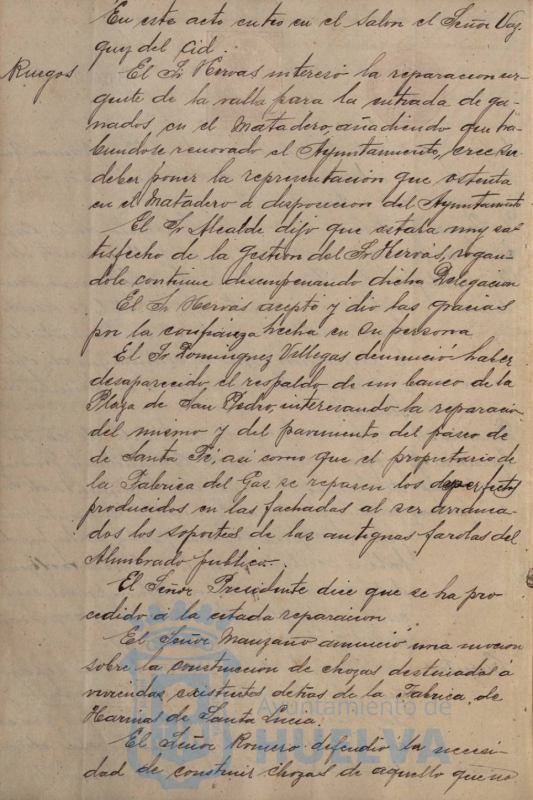 En este acto entro en el salon el Señor Vaz-
quez del Cid.
Ruegos
El Sr Hervas intereso la reparacion ur-
gente de la valla para la entrada de ga-
nados, en el Matadero, añadiendo que ha-
biendose renovado el Ayuntamiento, cree su
deber poner la representacion que ostenta
en el Matadero a disposicion del Ayuntamiento
El Sr Alcalde dijo que estara muy sa-
tisfecho de la gestion del Sr Hervas, rogan-
dole continue desempeñando dicha Delegacion
El Sr Hervas acepto y dio las gracias
por la confianza hecha en su persona
El Sr Dominguez Villegas denunció haber
desaparecido, el respaldo de un banco de la
Plaza de San Pedro, interesando la reparacion
del mismo y del pavimento del paseo de
de Santa Fé, asi como que el propietario de
la Fabrica del Gas se reparen los desperfectos
producidos en las fachadas al ser arranca-
dos los soportes de las antiguas farolas del
Alumbrado publico.
El Señor Presidente dice que se ha pro-
cedido a la citada reparacion
El Señor Manzano anuncio una mocion
sobre la construccion de chozas destinadas á
viviendas existentes detras de la Fabrica de
Harinas de Santa Lucia.
El Señor Romero defendio la necesi-
dad de construir chozas de aquello que no
Ayuntamiento de
HUELVA